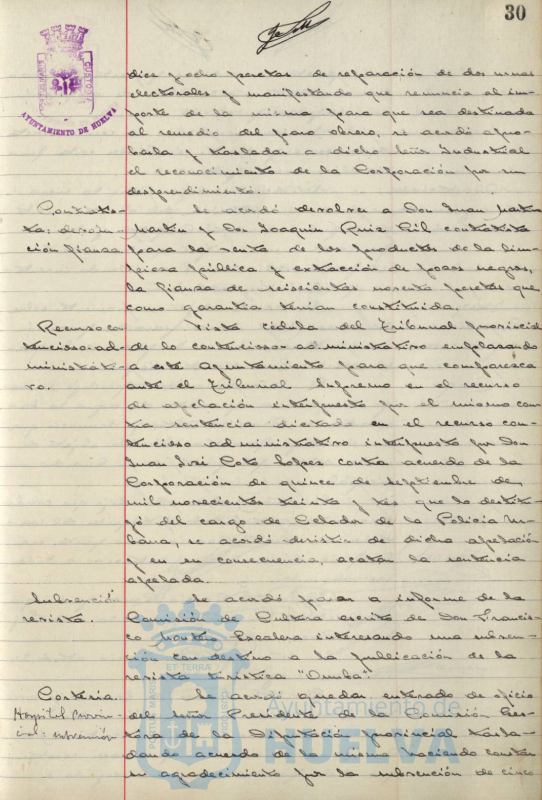 30
AYUNTAMIENTO DE HUELVA
diez y ocho pesetas de reparación de dos urnas
electorales y manifestando que renuncia al im-
porte de la misma para que sea destinada
al remedio del paro obrero, se acordó apro-
barla y trasladar a dicho Señor Industrial
el reconocimiento de la Corporación por su
desprendimiento.
Contratis-
ta: devolu-
ción fianza
Se acordó devolver a Don Juan Martín
Martín y Don Joaquín Ruiz Gil contratista
para la venta de los productos de la lim-
pieza pública y extracción de pozos negros,
la fianza de seiscientas noventa pesetas que
como garantía tenían constituida.
Recurso con
tencioso-ad-
ministrati-
vo.
Vista cédula del Tribunal provincial
de lo contencioso-administrativo emplazando
a este Ayuntamiento para que comparezca
ante el Tribunal Supremo en el recurso
de apelación interpuesto por el mismo con-
tra sentencia dictada en el recurso con-
tencioso administrativo interpuesto por Don
Juan José Coto López contra acuerdo de la
Corporación de quince de Septiembre de
mil novecientos treinta y tres que lo destitu-
yó del cargo de Celador de la Policía Ur-
bana, se acordó desistir de dicha apelación
y en su consecuencia, acatar la sentencia
apelada.
Subvención
revista.
Se acordó pasar a informe de la
Comisión de Cultura escrito de Don Francis-
co Montero Escalera interesando una subven-
ción con destino a la publicación de la
revista turística "Onuba".
Cortesía.
Hospital Provin-
cial: subvención
Se acordó quedar enterado de oficio
del Señor Presidente de la Comisión Ges-
tora de la Diputación provincial trasla-
dando acuerdo de la misma haciendo constar
su agradecimiento por la subvención de cinco
Ayuntamiento de
HUELVA